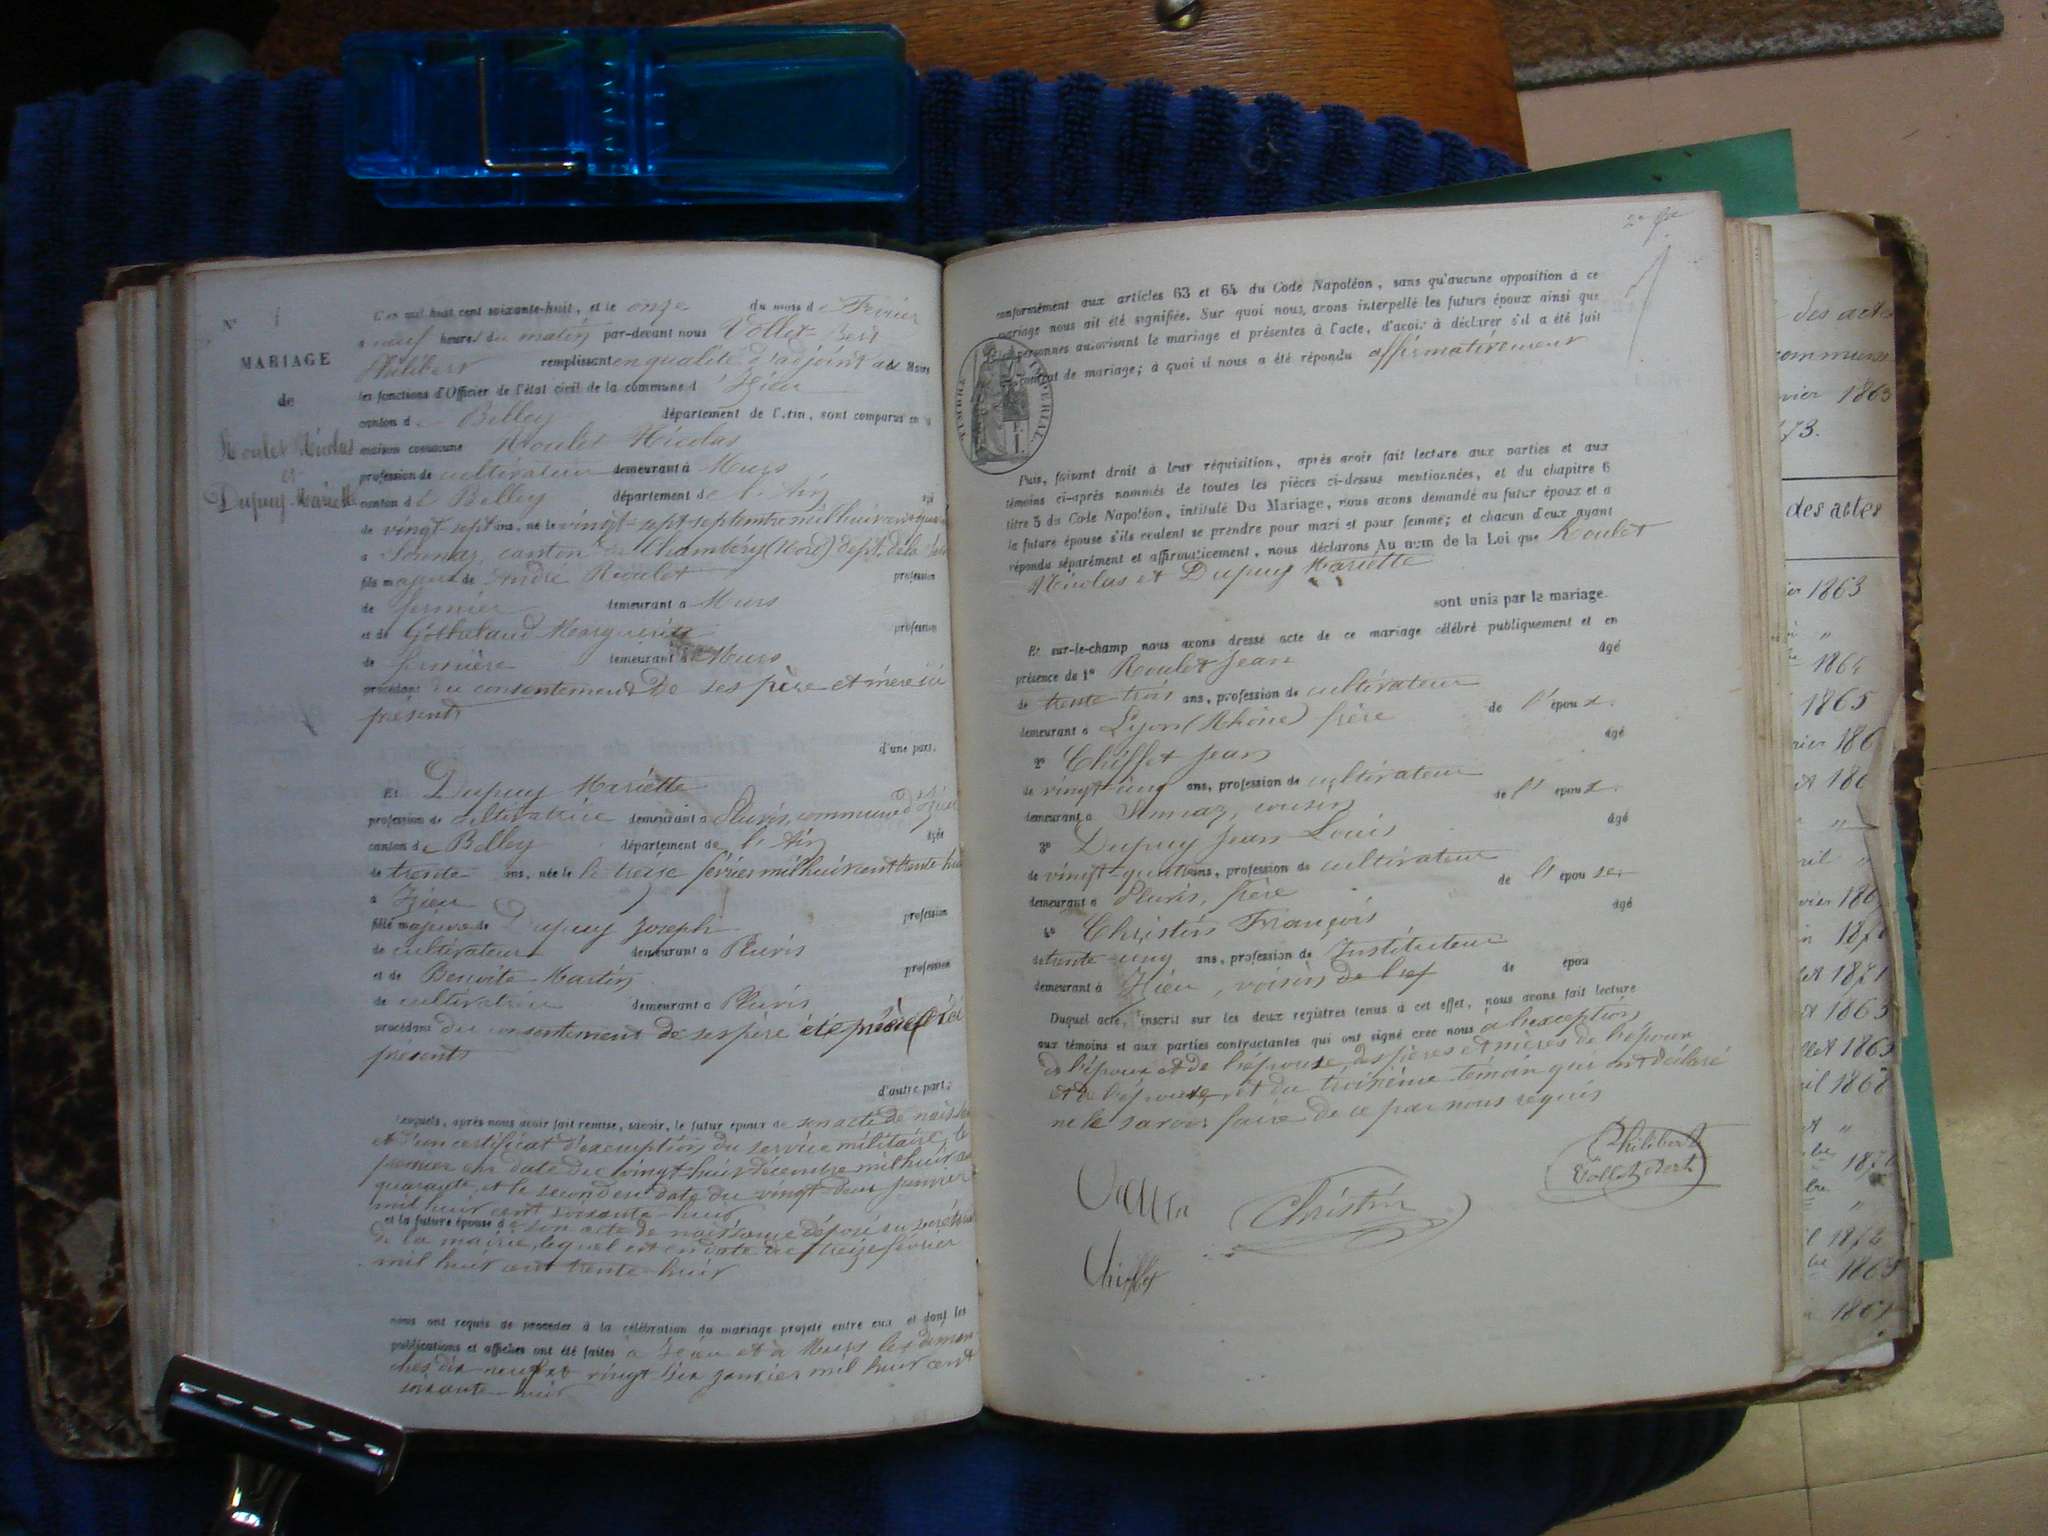 N° 1
MARIAGE
de
Roulet Nicolas
et
Dupuy Mariette
L'an mil huit cent soixante-huit, et le onze du mois de Févier
a neuf heures du matin par-devant nous Vollet Bert
Philibert remplissant en qualité d'adjoint au Maire
les fonctions d'Officier de l'état civil de la commune d'Izieu
canton de Belley département de l'Ain, sont comparus en la
maison commune Roulet Nicolas
profession de cultivateur demeurant à Murs
canton de Belley département de l'Ain
de vingt sept ans, né le vingt-sept septembre mil huit cent
a Sonnaz, canton de Chambéry (Nord) dépt. de la
fils majeur de André Roulet profession
de fermier demeurant a Murs
et de Gotheland Marguerite profession
de fermière demeurant a Murs
procédant du consentement de ses père et mère ici
présents
d'une part.
Et Dupuy Mariette
profession de cultivatrice demeurant a Pluvis, commune d'Izieu
canton de Belley département de l'Ain âgée
de trente ans, née le le treize févier mil huit cent trente huit
a Izieu
fille majeure de Dupuy Joseph profession
de cultivateur demeurant a Pluvis
et de Benoite Martin profession
de cultivatrice demeurant a Pluvis
procédant du consentement de ses père et mère ici
présents
d'autre part;
Lesquels, après nous avoir fait remise, savoir, le futur époux de son acte de
et d'un certificat d'exemption du service militaire, le
premier en date du vingt-huit décembre mil huit
quarante et le second en date du vingt-deux janvier
mil huit cent soixante-huit
et la future épouse de son acte de naissance déposé au
de la mairie, lequel est en date du treize février
mil huit cent trente-huit
nous ont requis de procéder à la célébration du mariage projeté entre eux et dont les
publications et affiches ont été faites à Izieu et à Murs les diman-
ches dix-neuf et vingt six janvier mil huit cent
soixante-huit
conformément aux articles 63 et 64 du Code Napoléon, sans qu'aucune opposition à ce
mariage nous ait été signifiée. Sur quoi nous avons interpellé les futurs époux ainsi que
les personnes autorisant le mariage et présentes à l'acte, d'avoir à déclarer s'il a été fait
contrat de mariage; à quoi il nous a été répondu affirmativement
TIMBRE IMPÉRIAL
Puis, faisant droit à leur réquisition, après avoir fait lecture aux parties et aux
témoins ci-après nommés de toutes les pièces ci-dessus mentionnées, et du chapitre 6
titre 5 du Code Napoléon, intitulé Du Mariage, nous avons demandé au futur époux et a
la future épouse s'ils veulent se prendre pour mari et pour femme; et chacun d'eux ayant
répondu séparément et affirmativement, nous déclarons Au nom de la Loi que Roulet
Nicolas et Dupuy Mariette
sont unis par le mariage.
Et sur-le-champ nous avons dressé acte de ce mariage célébré publiquement et en
présence de 1° Roulet Jean âgé
de trente trois ans, profession de cultivateur
demeurant a Lyon (Rhône) frère de l'époux.
2° Chiffet Jean âgé
de vingt-cinq ans, profession de cultivateur
demeurant a Sonnaz, cousin de l'époux.
3° Dupuy Jean Louis âgé
de vingt-quatre ans, profession de cultivateur
demeurant a Pluvis, frère de l'épouse.
4° Christin François âgé
de trente-cinq ans, profession de Instituteur
demeurant à Izieu, voisin de l'ef de épou
Duquel acte, inscrit sur les deux registres tenus à cet effet, nous avons fait lecture
aux témoins et aux parties contractantes qui ont signé avec nous à l'exception
de l'époux et de l'épouse, des pères et mères de l'époux
et de l'épouse, et du troisième témoin qui ont déclaré
ne le savoir faire de ce par nous requis
Philibert
Vollet Bert
Christin
Chiffet
des actes
commune
vrier 1863
73.
des actes
1863
1864
1865